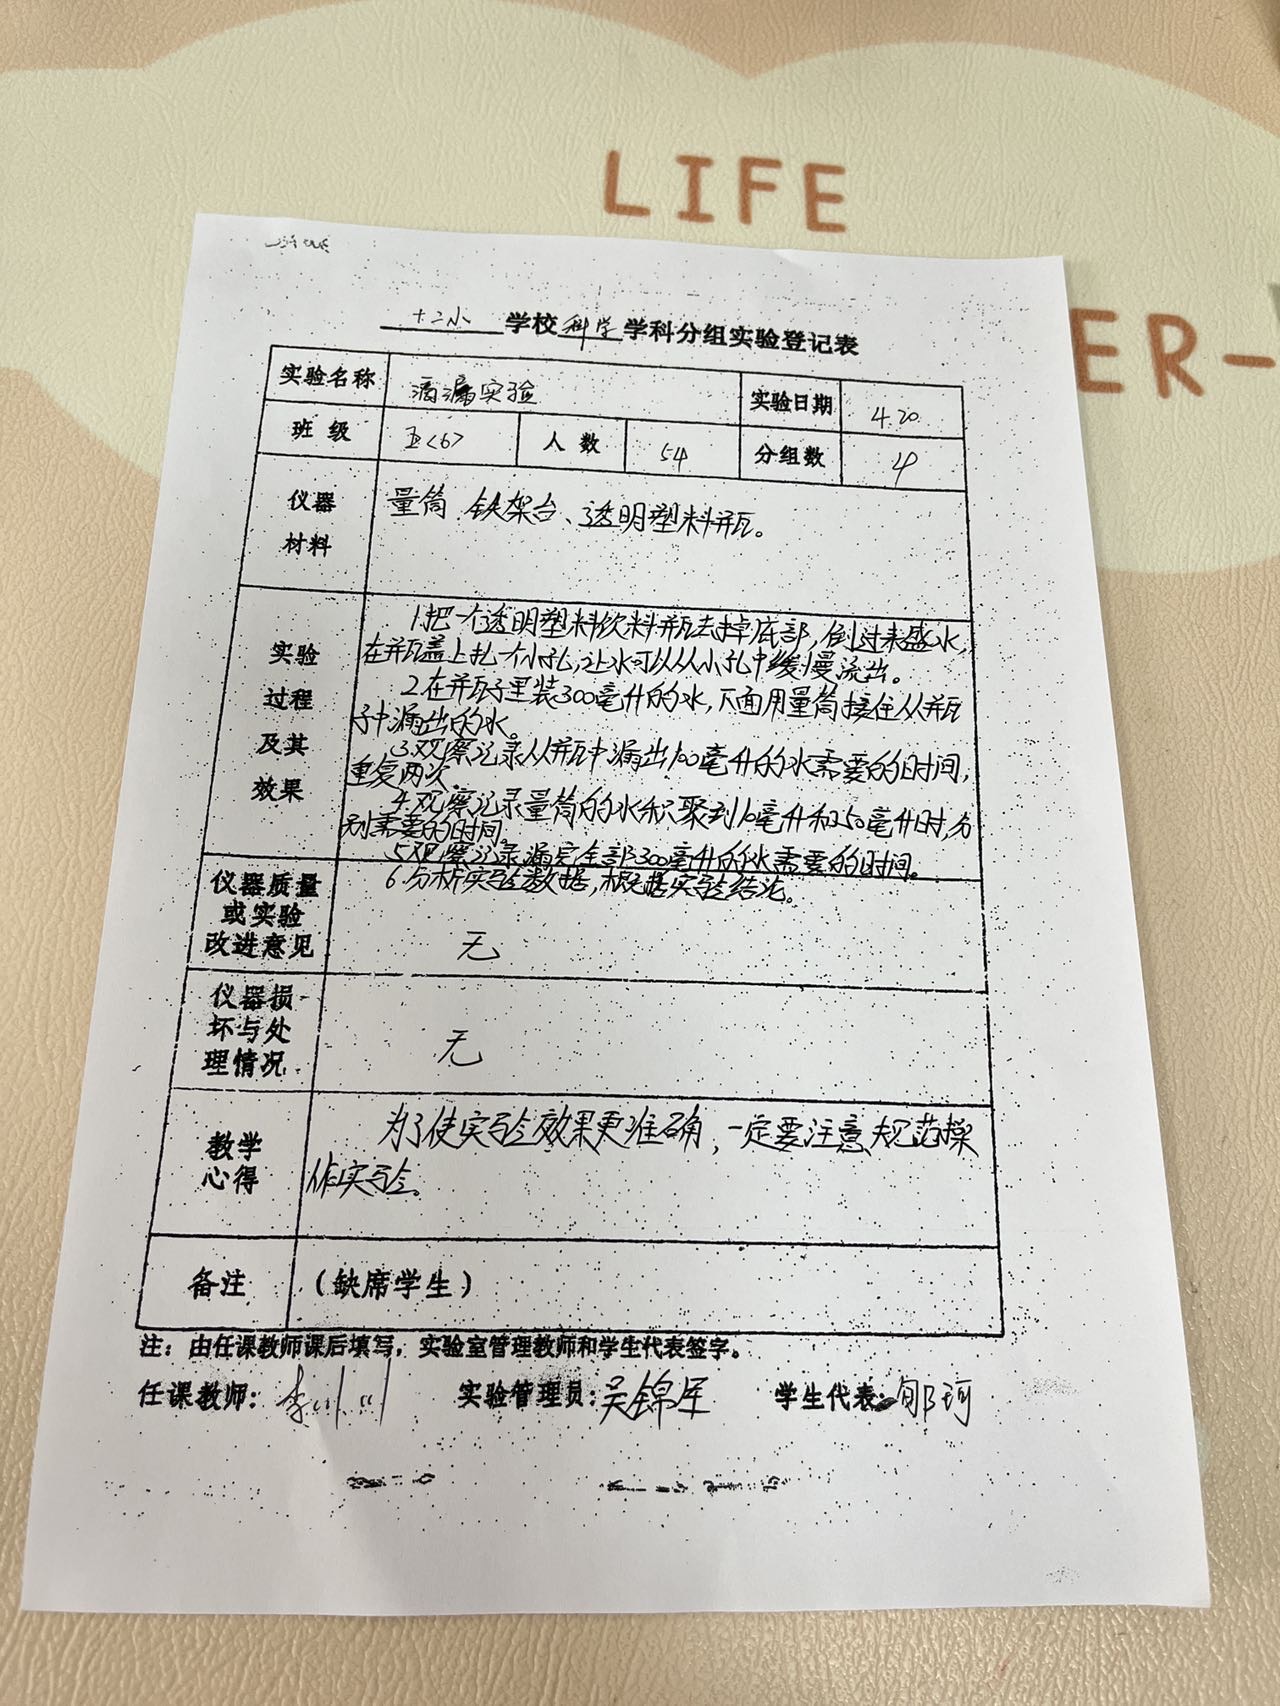 LIFE
ER-
十二小 学校 科学 学科分组实验登记表
实验名称 滴漏实验 实验日期 4.20
班 级 五<6> 人 数 54 分组数 4
仪器
材料
量筒 铁架台、透明塑料瓶。
实验
过程
及其
效果
1.把一个透明塑料饮料瓶去掉底部,倒过来盛水,
在瓶盖上扎一个小孔,让水可以从小孔中缓慢流出。
2.在瓶子里装300毫升的水,下面用量筒接住从瓶
子中漏出的水。
3.观察记录从瓶中漏出100毫升的水需要的时间,
重复两次
4.观察记录量筒的水积聚到10毫升和250毫升时,分
别需要的时间。
5.观察记录漏完全部300毫升的水需要的时间。
6.分析实验数据,根据实验结论。
仪器质量
或实验
改进意见
无
仪器损
坏与处
理情况
无
教学
心得
为了使实验效果更准确,一定要注意规范操
作实验。
备注 (缺席学生)
注:由任课教师课后填写,实验室管理教师和学生代表签字。
任课教师: 实验管理员:吴锦军 学生代表: